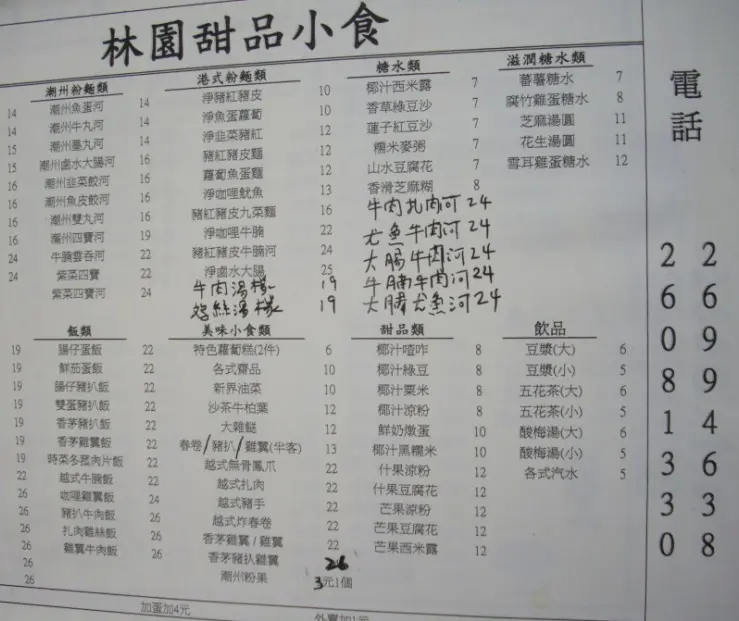 林園甜品小食
潮州粉麵類
14 潮州魚蛋河 14
14 潮州牛丸河 14
15 潮州墨丸河 15
15 潮州鹵水大腸河 16
16 潮州韭菜餃河 16
16 潮州魚皮餃河 16
16 潮州雙丸河 19
16 潮州四寶河 22
24 牛腩雲吞河 22
24 紫菜四寶 24
紫菜四寶河
港式粉麵類
淨豬紅豬皮 10
淨魚蛋蘿蔔 10
淨韭菜豬紅 12
豬紅豬皮麵 12
蘿蔔魚蛋麵 12
淨咖哩魷魚 13
豬紅豬皮九菜麵 16
淨咖哩牛腩 22
豬紅豬皮牛腩河 24
淨鹵水大腸 25
牛肉湯檬 19
絲湯檬 19
糖水類
椰汁西米露 7
香草綠豆沙 7
蓮子紅豆沙 7
糯米麥粥 7
山水豆腐花 7
香滑芝麻糊 8
牛肉扎肉河 24
尤魚牛肉河 24
大腸牛肉河 24
牛腩牛肉河 24
大腸尤魚河 24
滋潤糖水類
蕃薯糖水 7
腐竹雞蛋糖水 8
芝麻湯圓 11
花生湯圓 11
雪耳雞蛋糖水 12
飯類
19 腸仔蛋飯 22
19 鮮茄蛋飯 22
19 腸仔豬扒飯 22
19 雙蛋豬扒飯 22
19 香茅豬扒飯 22
19 香茅雞翼飯 22
19 時菜冬菇肉片飯 22
22 越式牛腩飯 22
26 咖哩雞翼飯 24
26 豬扒牛肉飯 26
26 扎肉雞絲飯 26
26 雞翼牛肉飯 26
26
26
美味小食類
特色蘿蔔糕(2件) 6
各式齋品 10
新界油菜 10
沙茶牛柏葉 12
大雜鎚 12
春卷/豬扒/雞翼(半客) 13
越式無骨鳳爪 22
越式扎肉 22
越式豬手 22
越式炸春卷 22
香茅雞翼/雞翼 22
香茅豬扒雞翼 26
潮州粉果 3元1個
甜品類
椰汁喳咋 8
椰汁綠豆 8
椰汁粟米 8
椰汁涼粉 8
鮮奶燉蛋 10
椰汁黑糯米 10
什果涼粉 12
什果豆腐花 12
芒果涼粉 12
芒果豆腐花 12
芒果西米露 12
飲品
豆漿(大) 6
豆漿(小) 5
五花茶(大) 6
五花茶(小) 5
酸梅湯(大) 6
酸梅湯(小) 5
各式汽水 5
加蛋加4元
外賣加1元
電話
26994638
26081330